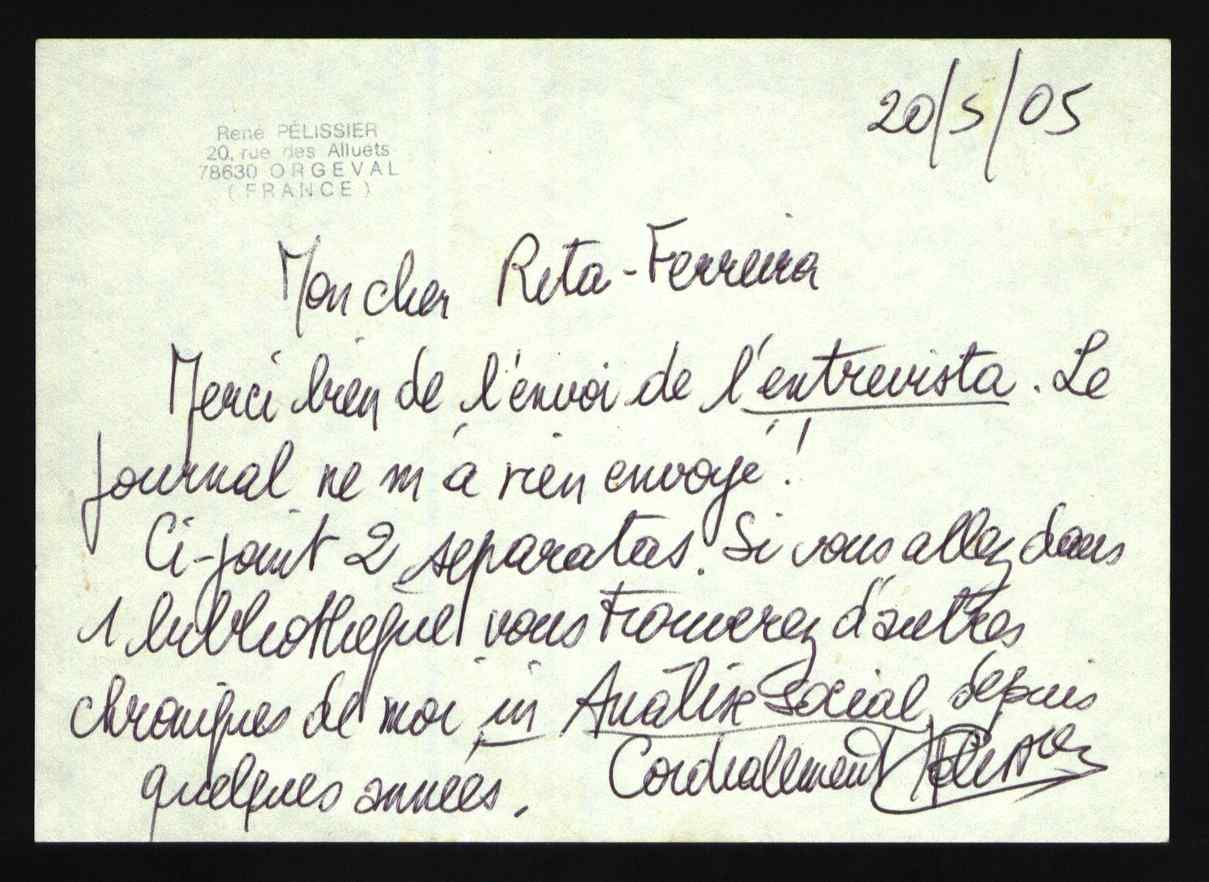 20/5/05
René PÉLISSIER
20, rue des Alluets
78630 ORGEVAL
(FRANCE)
Mon cher Rita-Ferreira
Merci bien de l'envoi de l'entrevista. Le
journal ne m'a rien envoyé !
Ci-joint 2 separatas. Si vous allez dans
1 bibliothèque vous trouverez d'autres
chroniques de moi in Análise Social depuis
quelques années.
Cordialement Pélissier